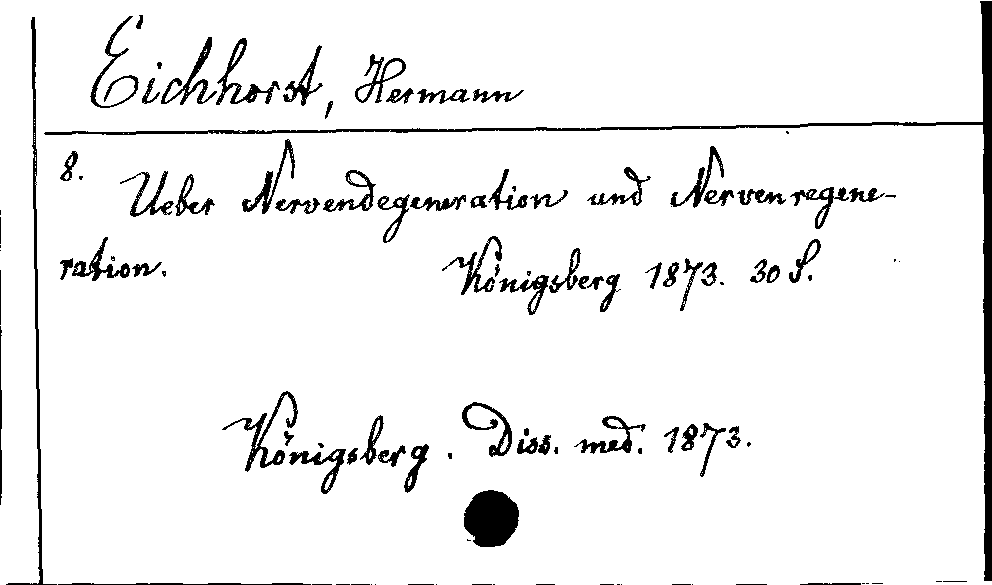 Eichhorst, Hermann
8. Ueber Nervendegeneration und Nervenregene-
ration. Königsberg 1873. 30 S.
Königsberg. Diss. med. 1873.